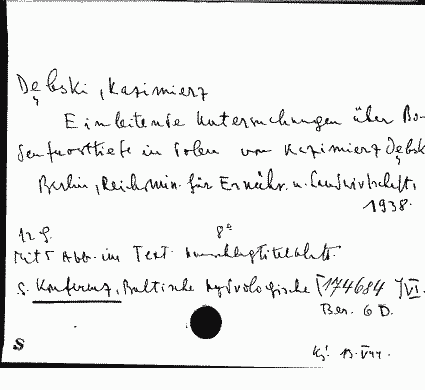 Dębski, Kazimierz
Einleitende Untersuchungen über Bo-
denfrosttiefe in Polen von Kazimierz Dębsk
Berlin, Reichsmin. für Ernähr. u. Landwirtschaft,
1938.
12 S. 8°
Mit 5 Abb. im Text. Umschlagtitelblatt.
S. Konferenz, Baltische hydrologische [174684] VI.
Ber. 6 D.
S